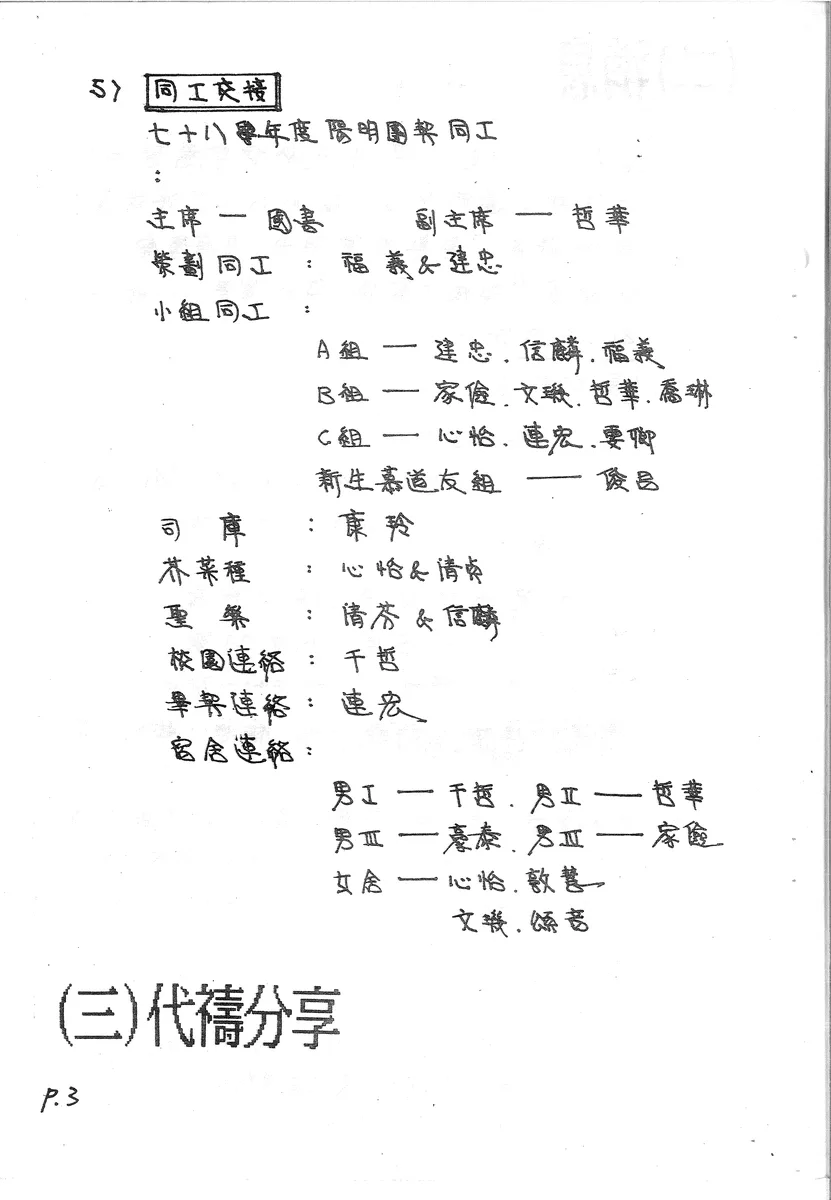 5) 同工交接
七十八學年度陽明團契同工
:
主席 — 國書 副主席 — 哲華
策劃同工 : 福義&建忠
小組同工 :
A組 — 建忠.信麟.福義
B組 — 家儉.文璣.哲華.喬琳
C組 — 心怡.連宏.要卿
新生慕道友組 — 俊呂
司庫 : 康玲
芥菜種 : 心怡&清貞
聖樂 : 清芬&信麟
校園連絡 : 千哲
畢契連絡 : 連宏
宿舍連絡 :
男I — 千哲.男II — 哲華
男III — 豪泰.男III — 家儉
女舍 — 心怡.敦慧
文璣.頌音
(三)代禱分享
P.3